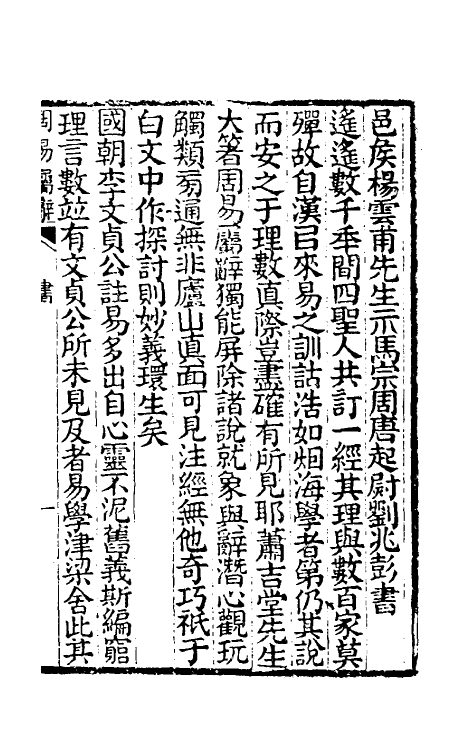 邑矦楊雲甫先生示馬宗周唐起尉劉兆彭書
遙遙數千年間四聖人共訂一經其理與數百家莫
殫故自漢㠯來易之訓詁浩如烟海學者第仍其說
而安之于理數真際豈盡確有所見耶蕭吉堂先生
大箸周易屬辭獨能屏除諸說就象與辭潛心觀玩
觸類㫄通無非廬山真面可見注經無他奇巧祇于
白文中作探討則妙義環生矣
國朝李文貞公註易多出自心靈不泥舊義斯編窮
理言數竝有文貞公所未見及者易學津梁舍此其
周易屬辭 書 一